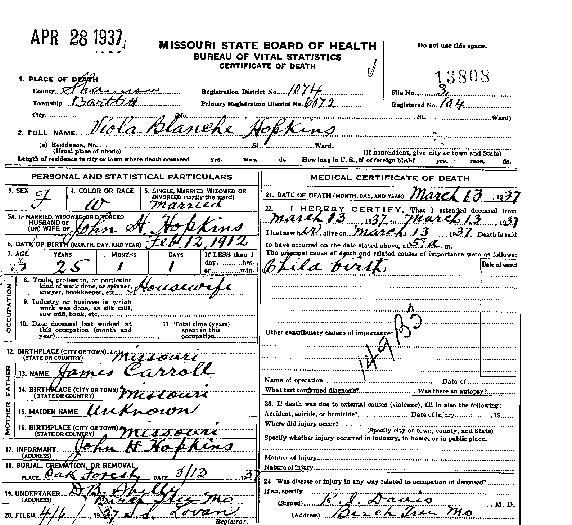 APR 28 1937
MISSOURI STATE BOARD OF HEALTH
BUREAU OF VITAL STATISTICS
CERTIFICATE OF DEATH
Do not use this space.
13808
1. PLACE OF DEATH
County Shannon Registration District No. 1074 File No. 3
Township Bartlett Primary Registration District No. 6072 Registered No. 104
City No. St. Ward)
2. FULL NAME Viola Blanche Hopkins
(a) Residence, No. St. Ward.
(Usual place of abode) (If nonresident, give city or town and State)
Length of residence in city or town where death occurred yrs. mos. ds. How long in U. S., if of foreign birth? yrs. mos. ds.
PERSONAL AND STATISTICAL PARTICULARS
3. SEX F 4. COLOR OR RACE W 5. SINGLE, MARRIED, WIDOWED OR DIVORCED (write the word) married
5a. IF MARRIED, WIDOWED, OR DIVORCED
HUSBAND OF
(OR) WIFE OF John H Hopkins
6. DATE OF BIRTH (MONTH, DAY, AND YEAR) Feb 12, 1912
7. AGE YEARS MONTHS DAYS If LESS than 1
25 1 1 day, hrs. or min.
OCCUPATION
8. Trade, profession, or particular kind of work done, as spinner, sawyer, bookkeeper, etc. Housewife
9. Industry or business in which work was done, as silk mill, saw mill, bank, etc.
10. Date deceased last worked at this occupation (month and year) 11. Total time (years) spent in this occupation
12. BIRTHPLACE (CITY OR TOWN) Missouri
(STATE OR COUNTRY)
FATHER
13. NAME James Carroll
14. BIRTHPLACE (CITY OR TOWN) Missouri
(STATE OR COUNTRY)
MOTHER
15. MAIDEN NAME Unknown
16. BIRTHPLACE (CITY OR TOWN) Missouri
(STATE OR COUNTRY)
17. INFORMANT John H Hopkins
(ADDRESS)
18. BURIAL, CREMATION, OR REMOVAL
PLACE Oak Forest DATE 3/13 37
19. UNDERTAKER D.B.
(ADDRESS) Birch Tree Mo
20. FILED 4/6 1937 Lovan
Registrar.
MEDICAL CERTIFICATE OF DEATH
21. DATE OF DEATH (MONTH, DAY, AND YEAR) March 13, 1937
22. I HEREBY CERTIFY, That I attended deceased from
March 13, 1937, to March 13, 1937
I last saw her alive on March 13, 1937. Death is said
to have occurred on the date stated above, at 5 a m.
The principal cause of death and related causes of importance were as follows:
Date of onset
Child birth
149B5
Other contributory causes of importance:
Name of operation Date of
What test confirmed diagnosis? Was there an autopsy?
23. If death was due to external causes (violence), fill in also the following:
Accident, suicide, or homicide? Date of injury , 19
Where did injury occur?
(Specify city or town, county, and State)
Specify whether injury occurred in industry, in home, or in public place.
Manner of injury
Nature of injury
24. Was disease or injury in any way related to occupation of deceased?
If so, specify
(Signed) Davis M. D.
(Address) Birch Tree Mo